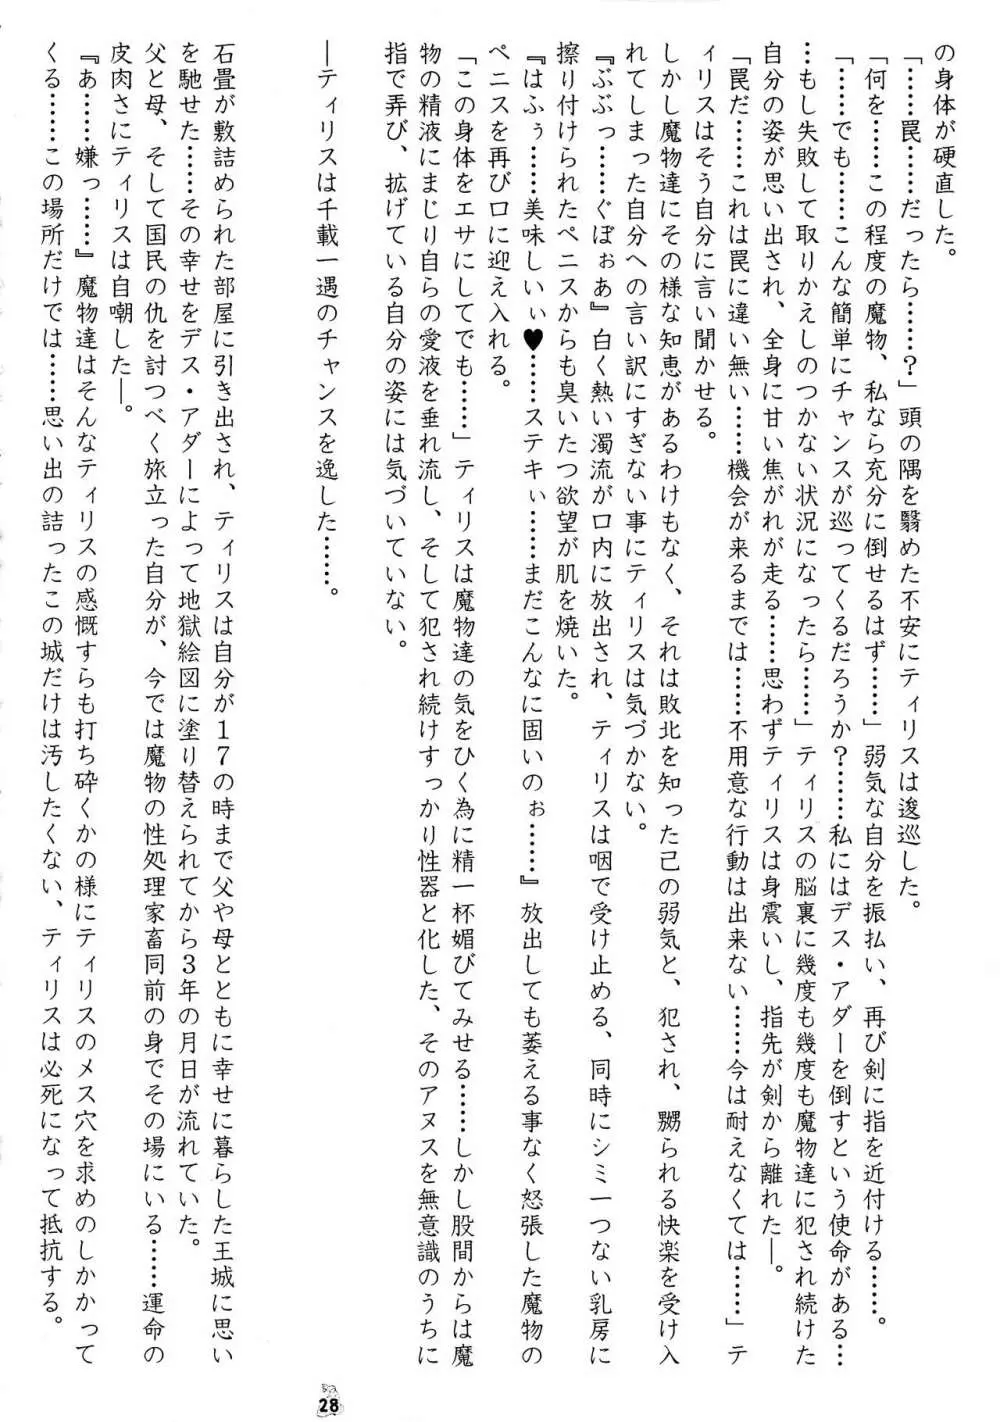 の身体が硬直した。
「……罠……だったら……？」頭の隅を翳めた不安にティリスは逡巡した。
「何を……この程度の魔物、私なら充分に倒せるはず……」弱気な自分を振払い、再び剣に指を近付ける……。
「……でも……こんな簡単にチャンスが巡ってくるだろうか？……私にはデス・アダーを倒すという使命がある…
…もし失敗して取りかえしのつかない状況になったら……」ティリスの脳裏に幾度も幾度も魔物達に犯され続けた
自分の姿が思い出され、全身に甘い焦がれが走る……思わずティリスは身震いし、指先が剣から離れた―。
「罠だ……これは罠に違い無い……機会が来るまでは……不用意な行動は出来ない……今は耐えなくては……」テ
ィリスはそう自分に言い聞かせる。
しかし魔物達にその様な知恵があるわけもなく、それは敗北を知った己の弱気と、犯され、嬲られる快楽を受け入
れてしまった自分への言い訳にすぎない事にティリスは気づかない。
『ぶぶっ……ぐぼぉぁ』白く熱い濁流が口内に放出され、ティリスは咽で受け止める、同時にシミ一つない乳房に
擦り付けられたペニスからも臭いたつ欲望が肌を焼いた。
『はふぅ……美味しいぃ♥……ステキぃ……まだこんなに固いのぉ……』放出しても萎える事なく怒張した魔物の
ペニスを再び口に迎え入れる。
「この身体をエサにしてでも……」ティリスは魔物達の気をひく為に精一杯媚びてみせる……しかし股間からは魔
物の精液にまじり自らの愛液を垂れ流し、そして犯され続けすっかり性器と化した、そのアヌスを無意識のうちに
指で弄び、拡げている自分の姿には気づいていない。
―ティリスは千載一遇のチャンスを逸した……。
石畳が敷詰められた部屋に引き出され、ティリスは自分が１７の時まで父や母とともに幸せに暮らした王城に思い
を馳せた……その幸せをデス・アダーによって地獄絵図に塗り替えられてから３年の月日が流れていた。
父と母、そして国民の仇を討つべく旅立った自分が、今では魔物の性処理家畜同前の身でその場にいる……運命の
皮肉さにティリスは自嘲した―。
『あ……嫌っ……』魔物達はそんなティリスの感慨すらも打ち砕くかの様にティリスのメス穴を求めのしかかって
くる……この場所だけでは……思い出の詰ったこの城だけは汚したくない、ティリスは必死になって抵抗する。
28